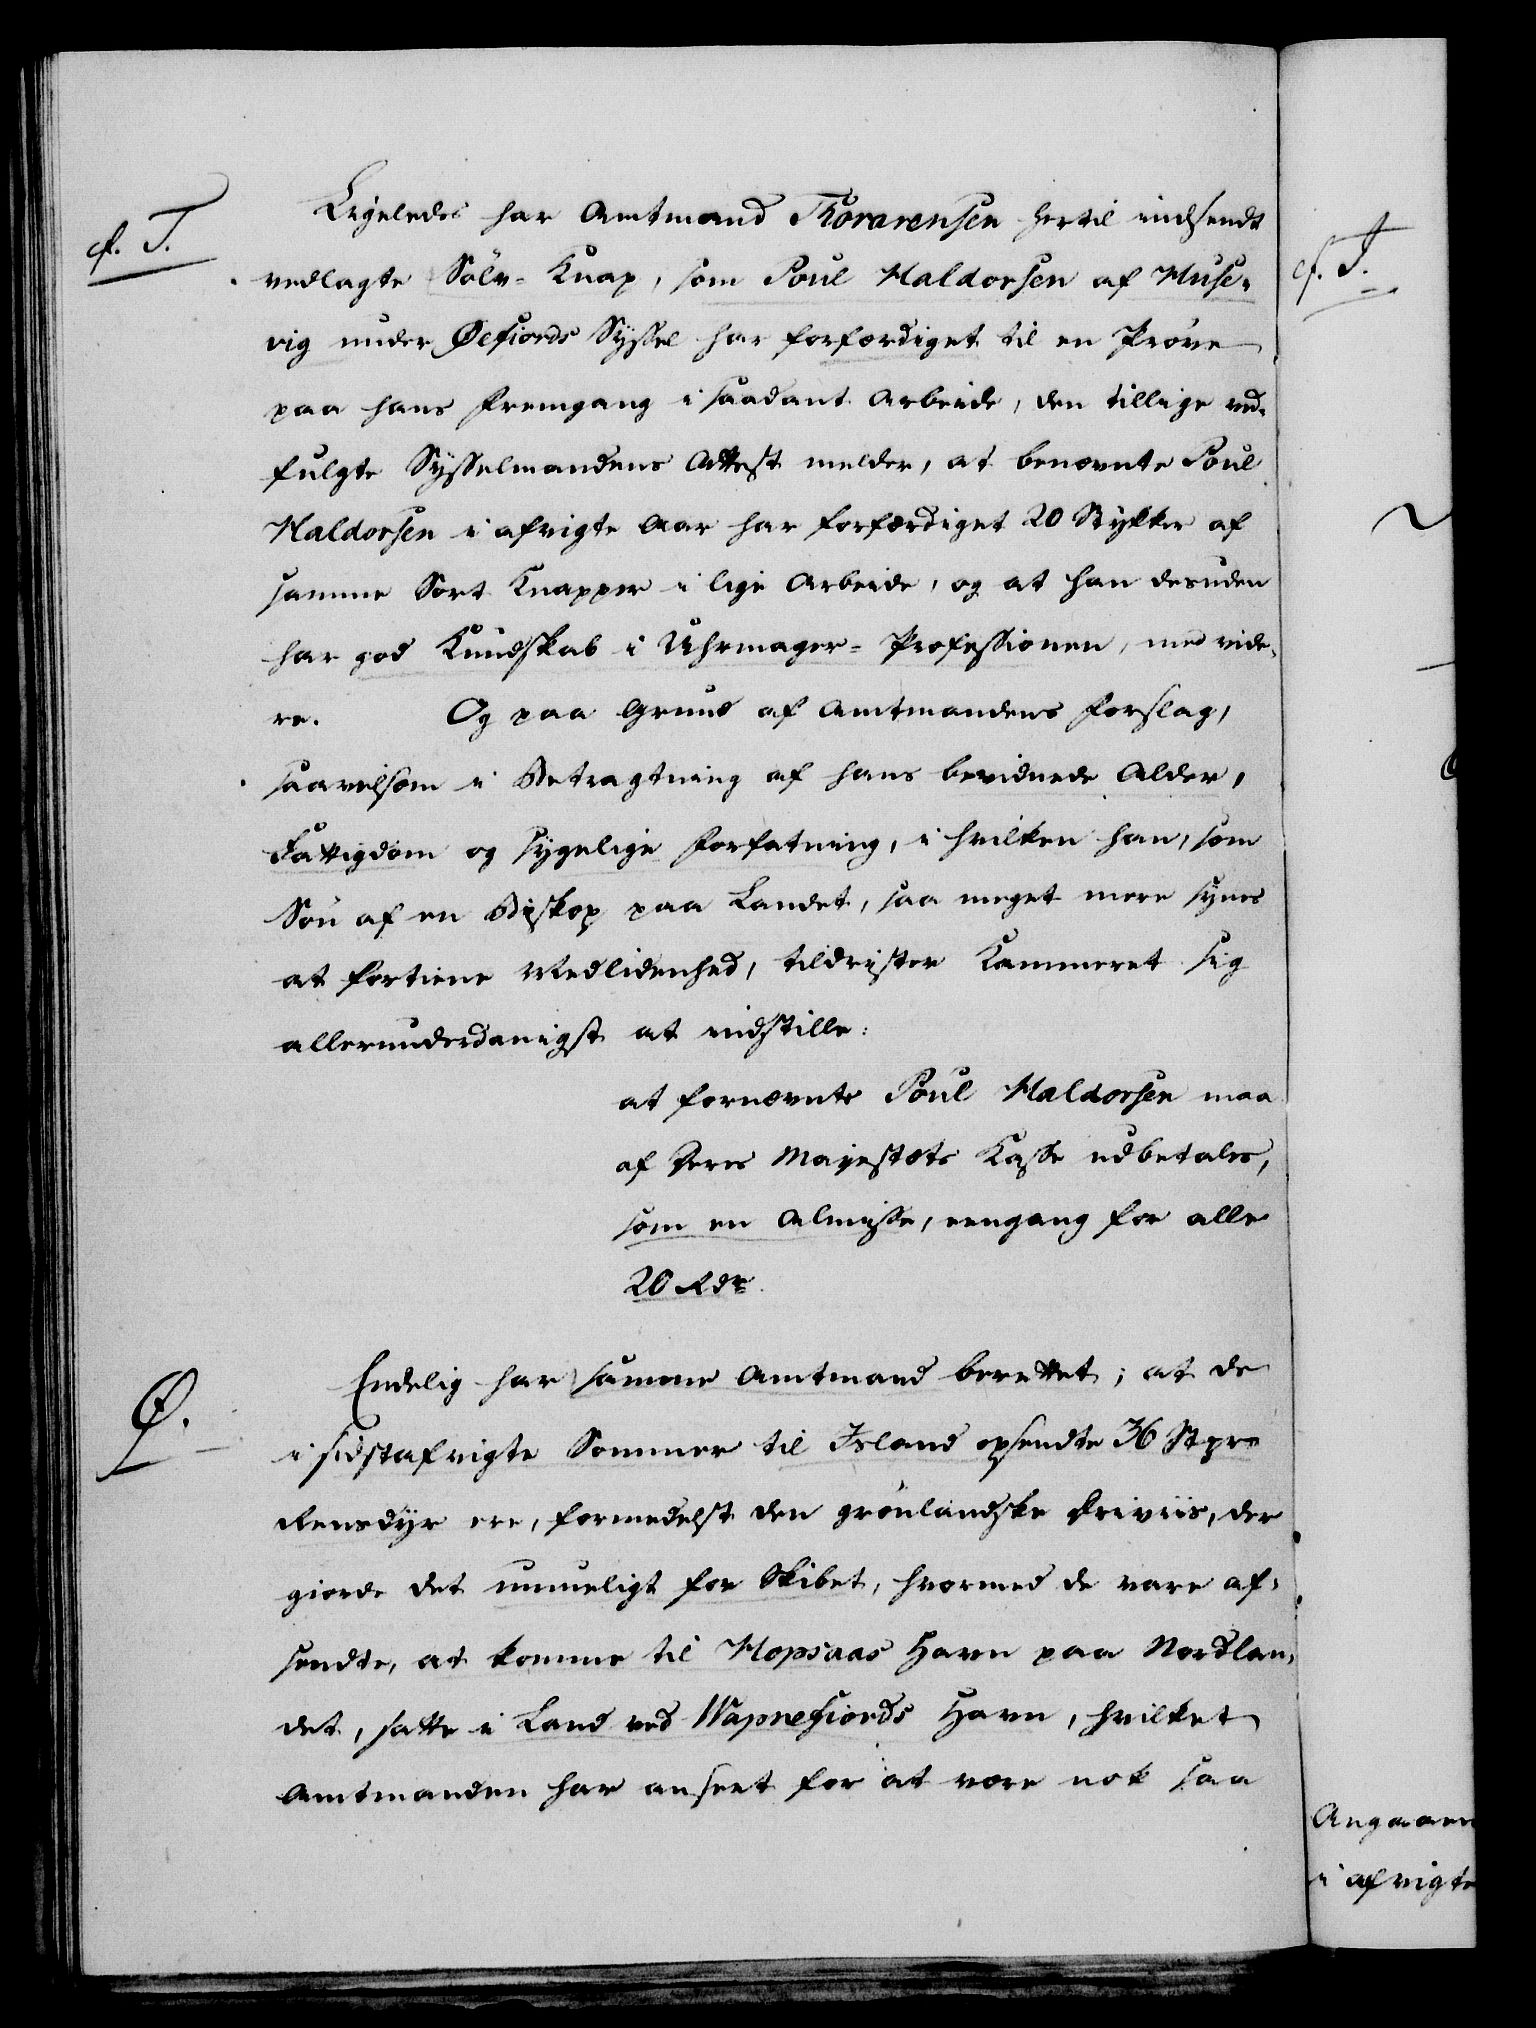 cf. T.
Ligeledes har Amtmand Thorarensen hertil indsendt
vedlagte Sölv-Knap, som Poul Haldorsen af Huse-
vig under Øefiords Syssel har forfærdiget til en Pröve
paa hans Fremgang i saadant Arbeide, den tillige ved-
fulgte Sysselmandens Attest melder, at benævnte Poul
Haldorsen i afvigte Aar har forfærdiget 20 Stykker af
samme Sort Knapper i lige Arbeide, og at han desuden
har god Kundskab i Uhrmager-Professionen, med vide-
re. Og paa Grund af Amtmandens Forslag,
saavelsom i Betragtning af hans bevidnede Alder,
Fattigdom og sygelige Forfatning, i hvilken han, som
Sön af en Biskop paa Landet, saa meget mere synes
at fortiene Medlidenhed, tildrister Kammeret sig
allerunderdanigst at indstille:
at fornævnte Poul Haldorsen maa
af Deres Majestæts Kasse udbetales,
som en Almisse, eengang for alle
20 Rdr.
Ø.
Endelig har samme Amtmand berettet; at de
i sidstafvigte Sommer til Island opsendte 36 Stpr
Rensdyr ere, formedelst den grönlandske Driviis, der
giorde det umueligt for Skibet, hvormed de vare af-
sendte, at komme til Hopsaas Havn paa Nordlan-
det, satte i Land ved Wapnefiords Havn, hvilket
Amtmanden har anseet for at være nok saa
cf. T.
Angaaen
i afvigte